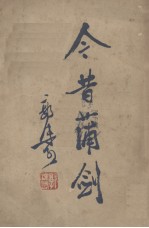 今昔蒲剑
郭沫若